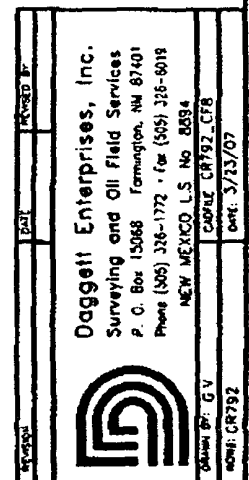 REVISION DATE REVISED BY
Daggett Enterprises, Inc.
Surveying and Oil Field Services
P. O. Box 15068 Farmington, NM 87401
Phone (505) 326-1772 · Fax (505) 326-6019
NEW MEXICO L.S. No 8894
DRAWN BY: G V CADFILE CR792_CF8
ROW#: CR792 DATE: 3/23/07